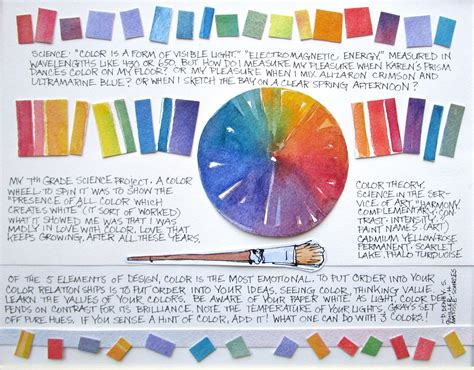 SCIENCE: "COLOR IS A FORM OF VISIBLE LIGHT." "ELECTROMAGNETIC ENERGY," MEASURED IN
WAVELENGTHS LIKE 430 OR 650, BUT HOW DO I MEASURE MY PLEASURE WHEN KAREN'S PRISM
DANCES COLOR ON MY FLOOR? OR MY PLEASURE WHEN I MIX ALIZARON CRIMSON AND
ULTRAMARINE BLUE? OR WHEN I SKETCH THE BAY ON A CLEAR SPRING AFTERNOON?
MY 7TH GRADE SCIENCE PROJECT. A COLOR
WHEEL. TO SPIN IT WAS TO SHOW THE
"PRESENCE OF ALL COLOR WHICH
CREATES WHITE" (IT SORT OF WORKED)
WHAT IT SHOWED ME WAS THAT I WAS
MADLY IN LOVE WITH COLOR. LOVE THAT
KEEPS GROWING, AFTER ALL THESE YEARS.
COLOR THEORY.
SCIENCE IN THE SER-
VICE OF ART. "HARMONY,
COMPLEMENTARY, CON-
TRAST, INTENSITY."
PAINT NAMES. (ART)
CADMIUM YELLOW. ROSE
PERMANENT. SCARLET
LAKE. PHALO TURQUOISE
OF THE 5 ELEMENTS OF DESIGN, COLOR IS THE MOST EMOTIONAL. TO PUT ORDER INTO YOUR
COLOR RELATIONSHIPS IS TO PUT ORDER INTO YOUR IDEAS, SEEING COLOR, THINKING VALUE.
LEARN THE VALUES OF YOUR COLORS. BE AWARE OF YOUR PAPER WHITE AS LIGHT. COLOR DE-
PENDS ON CONTRAST FOR ITS BRILLANCE. NOTE THE TEMPERATURE OF YOUR LIGHTS, GRAYS SET
OFF PURE HUES. IF YOU SENSE A HINT OF COLOR, ADD IT! WHAT ONE CAN DO WITH 3 COLORS!